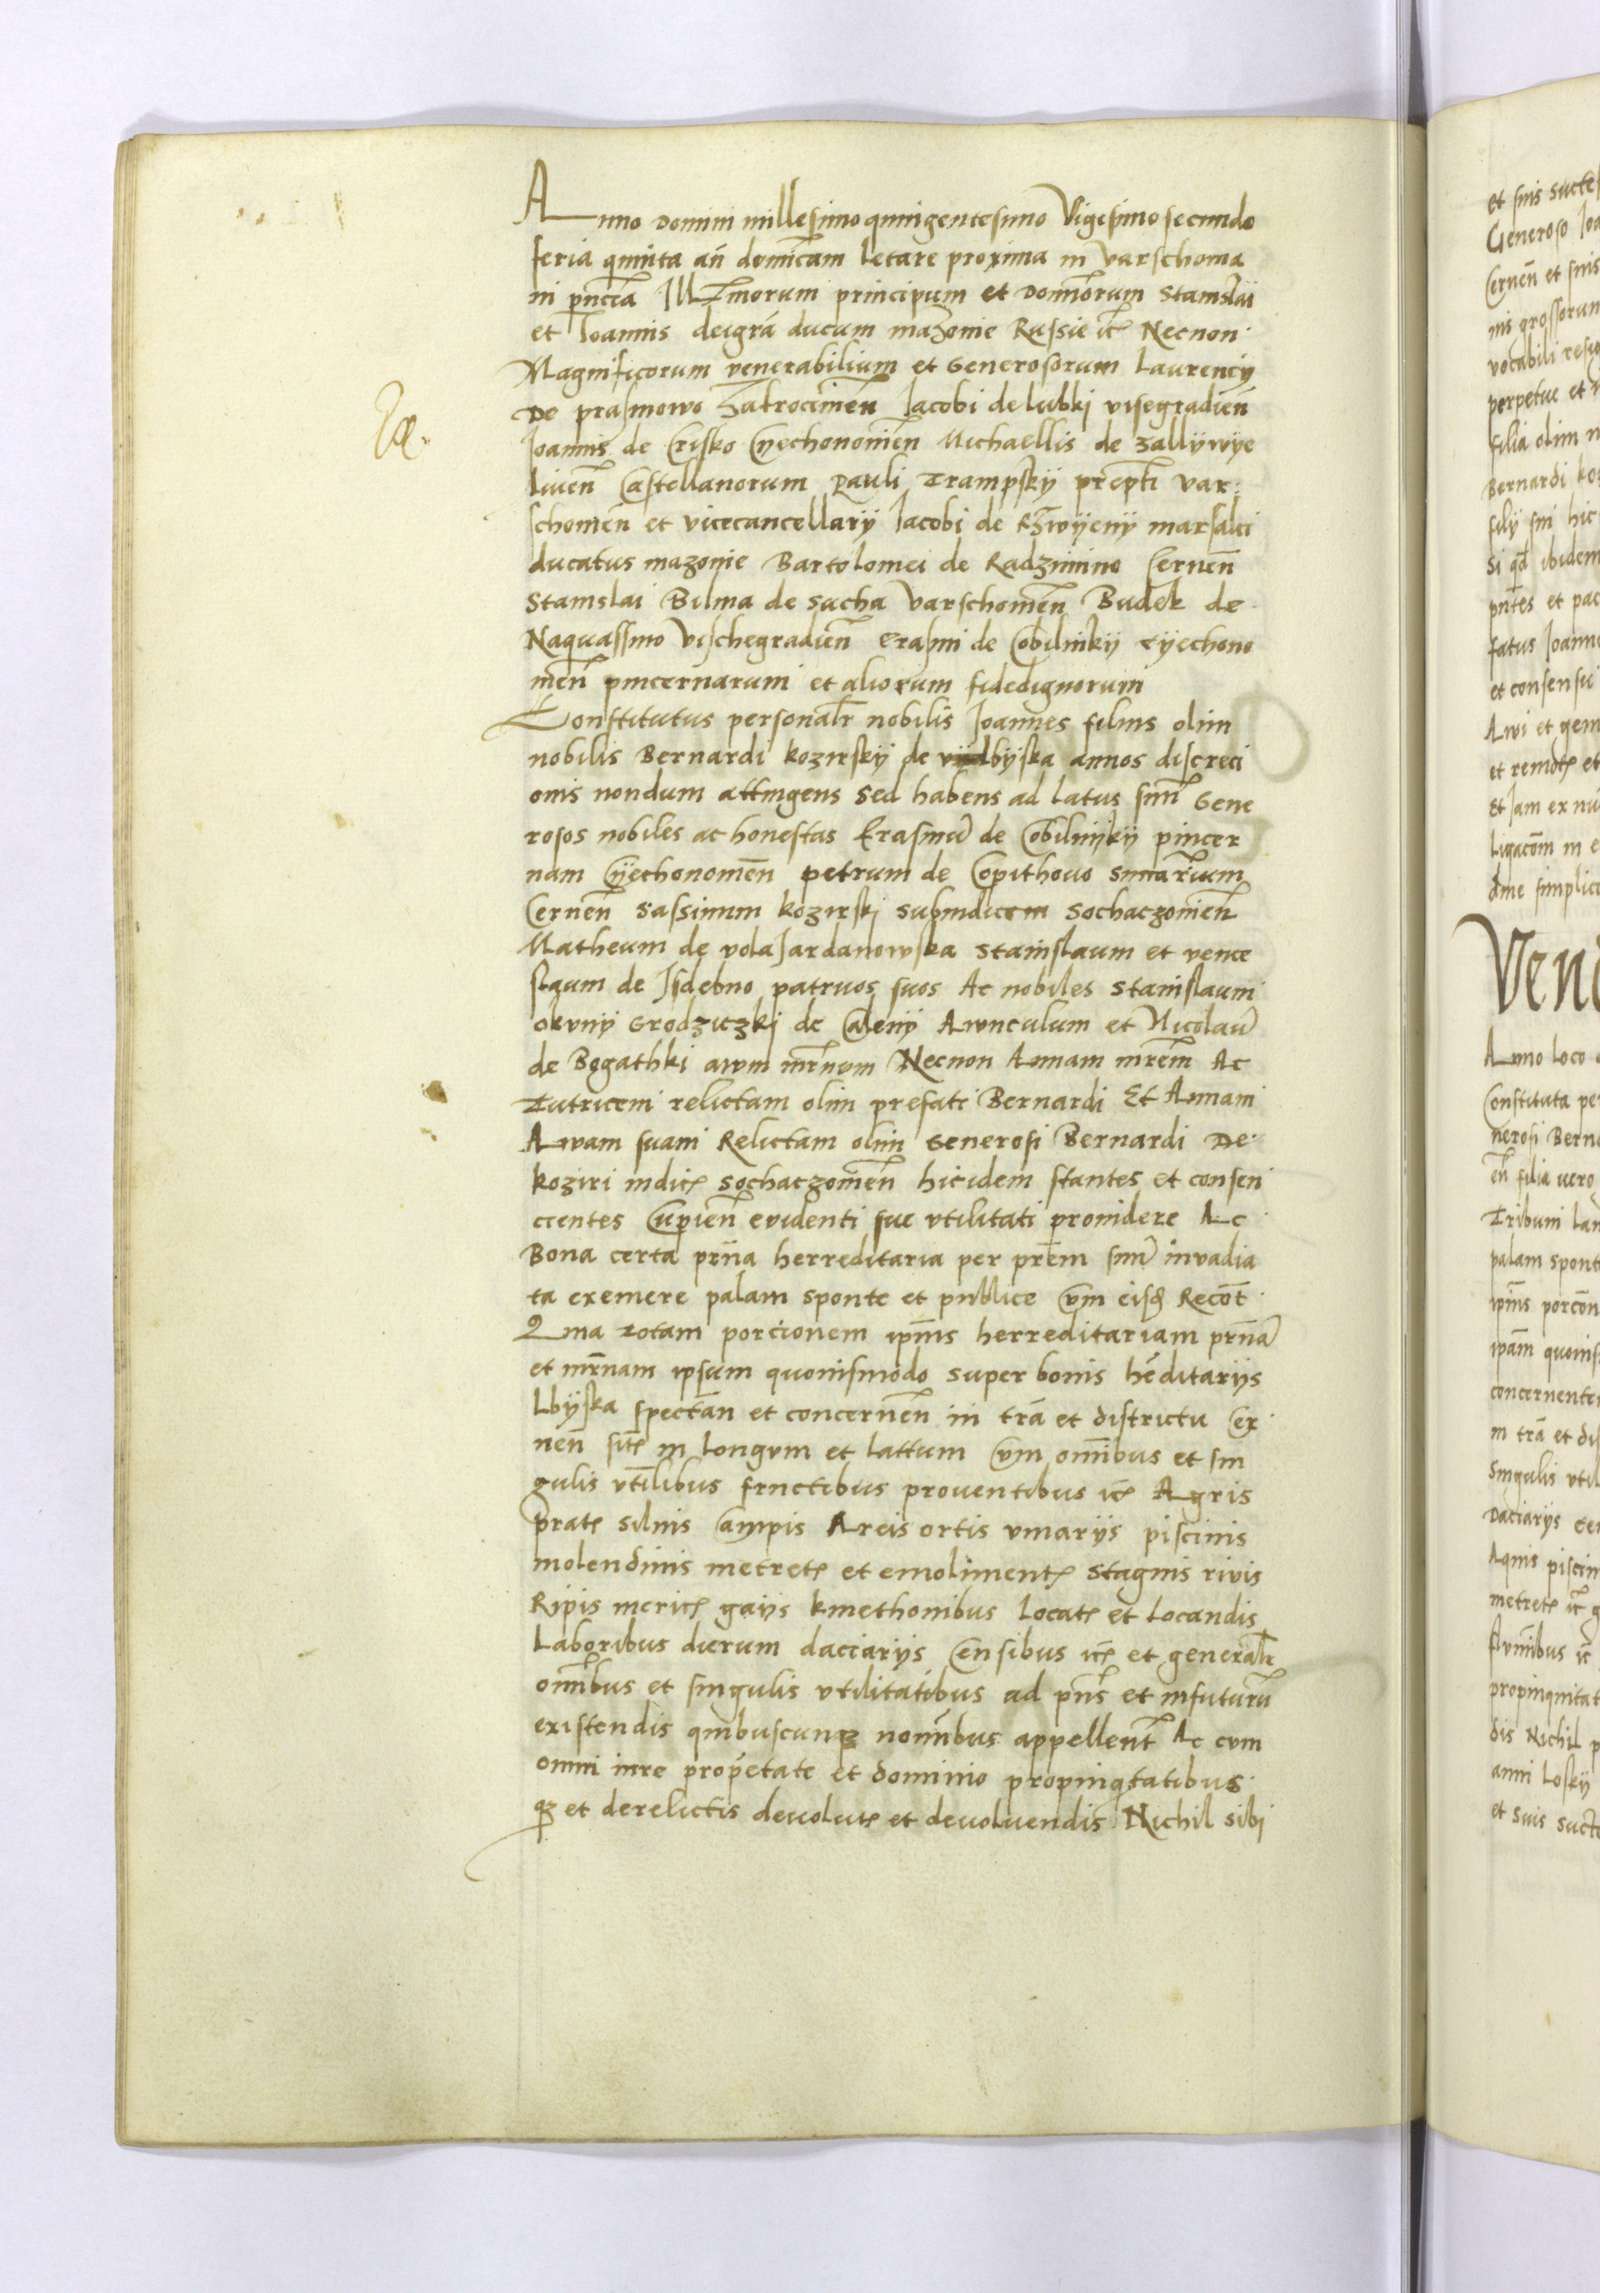 Anno Domini millesimo quingentesimo Vigesimo secundo
feria quinta an̄ dominicam letare proxima in Varschouia
in pn̄cia Illmorum principum et Dominorum Stanislai
et Ioannis deigrā ducum mazouie Russie ꝛc Necnon
Magnificorum venerabilium et Generosorum Laurencij
De prasmowo Zatroczimen̄ Iacobi de lubki visegradien̄
Ioannis de Crisko Cyechonouien̄ Michaellis de zallywye
liuen̄ Castellanorum Pauli Trampskij prepti var
schouien̄ et vicecancellarij Iacobi de marsalci
ducatus mazouie Bartolomei de Radzimino Cernen̄
Stanislai Bilina de sucha Varschouien̄ Budek de
Naquassino Vischegradien̄ Erasmi de Cobilnikij Cyechono
uien̄ pincernarum et aliorum fidedignorum
Constitutus personalr̄ nobilis Ioannes filius olim
nobilis Bernardi kozirskij de lbijska annos discreci
onis nondum attingens sed habens ad latus suū Gene
rosos nobiles ac honestas Erasmū de Cobilnijkij pincer
nam Cyechonouien̄ petrum de Copithouo
Cernen̄ Sassinum kozirski subiudicem Sochaczouien̄
Matheum de vola Jardanowska Stanislaum et vence
slaum de Jsdebno patruos suos Ac nobiles Stanislaum
okuny Grodziczki de Caleny Awnculum et Nicolaū
de Bogathki awm mr̄num Necnon Annam mr̄em Ac
Tutricem relictam olim prefati Bernardi Et Annam
Awam suam Relictam olim Generosi Bernardi De
koziri iudicꝭ sochaczouien̄ hicidem stantes et consen
cientes Cupien̄ euidenti sue vtilitati prouidere Ac
Bona certa pr̄na herreditaria per prēm suū inuadia
ta exemere palam sponte et publice Cum eisdꝫ Recōt
Quia totam porcionem ip̄ius herreditariam pr̄nā
et mr̄nam ipsum quouismodo super bonis hēditarijs
Lbijska spectan̄ et concernen̄ in trā et districtu Cer
nen̄ sitꝭ in longum et lattum Cum om̄ibus et sin
gulis vtilibus fructibus prouentibus ꝛc Agris
pratꝭ siluis Campis Areis ortis vmarijs piscinis
molendinis metretꝭ et emolimentꝭ stagnis riuis
Ripis mericꝭ gaijs kmethonibus locatꝭ et locandis
Laboribus dierum daciarijs Censibus ꝛc et generalr̄
om̄ibus et singulis vtilitatibus ad pn̄s et infuturū
existendis quibuscunqꝫ nom̄ibus appellent̄ Ac cum
omni iure propetate et dominio propinqtatibus
qꝫ et derelictis deuolutꝭ et deuoluendis Nichil sibi
et suis succes
Generoso Ioa
Cernen̄ et suis
nis grossorum
vocabili resig
perpetue et
filia olim n
Bernardi ko
filij sui hic
Si qd̄ ibidem
pn̄tes et pac
fatus Ioanne
et consensu
Awi et gem
et remotꝭ et
Et Jam ex nū
ligacōm in e
dn̄e simplici
Vend
Anno loco
Constituta per
nerosi Berna
en̄ filia uero
Tribuni lan
palam spont
ip̄ius porcōn
ipām quouis
concernente
in trā et dis
Singulis vtil
Daciarijs Cen
Aquis piscin
metretꝭ ꝛc g
fluminibus ꝛc
propinquitat
dis Nichil p
anni losky
et suis succe